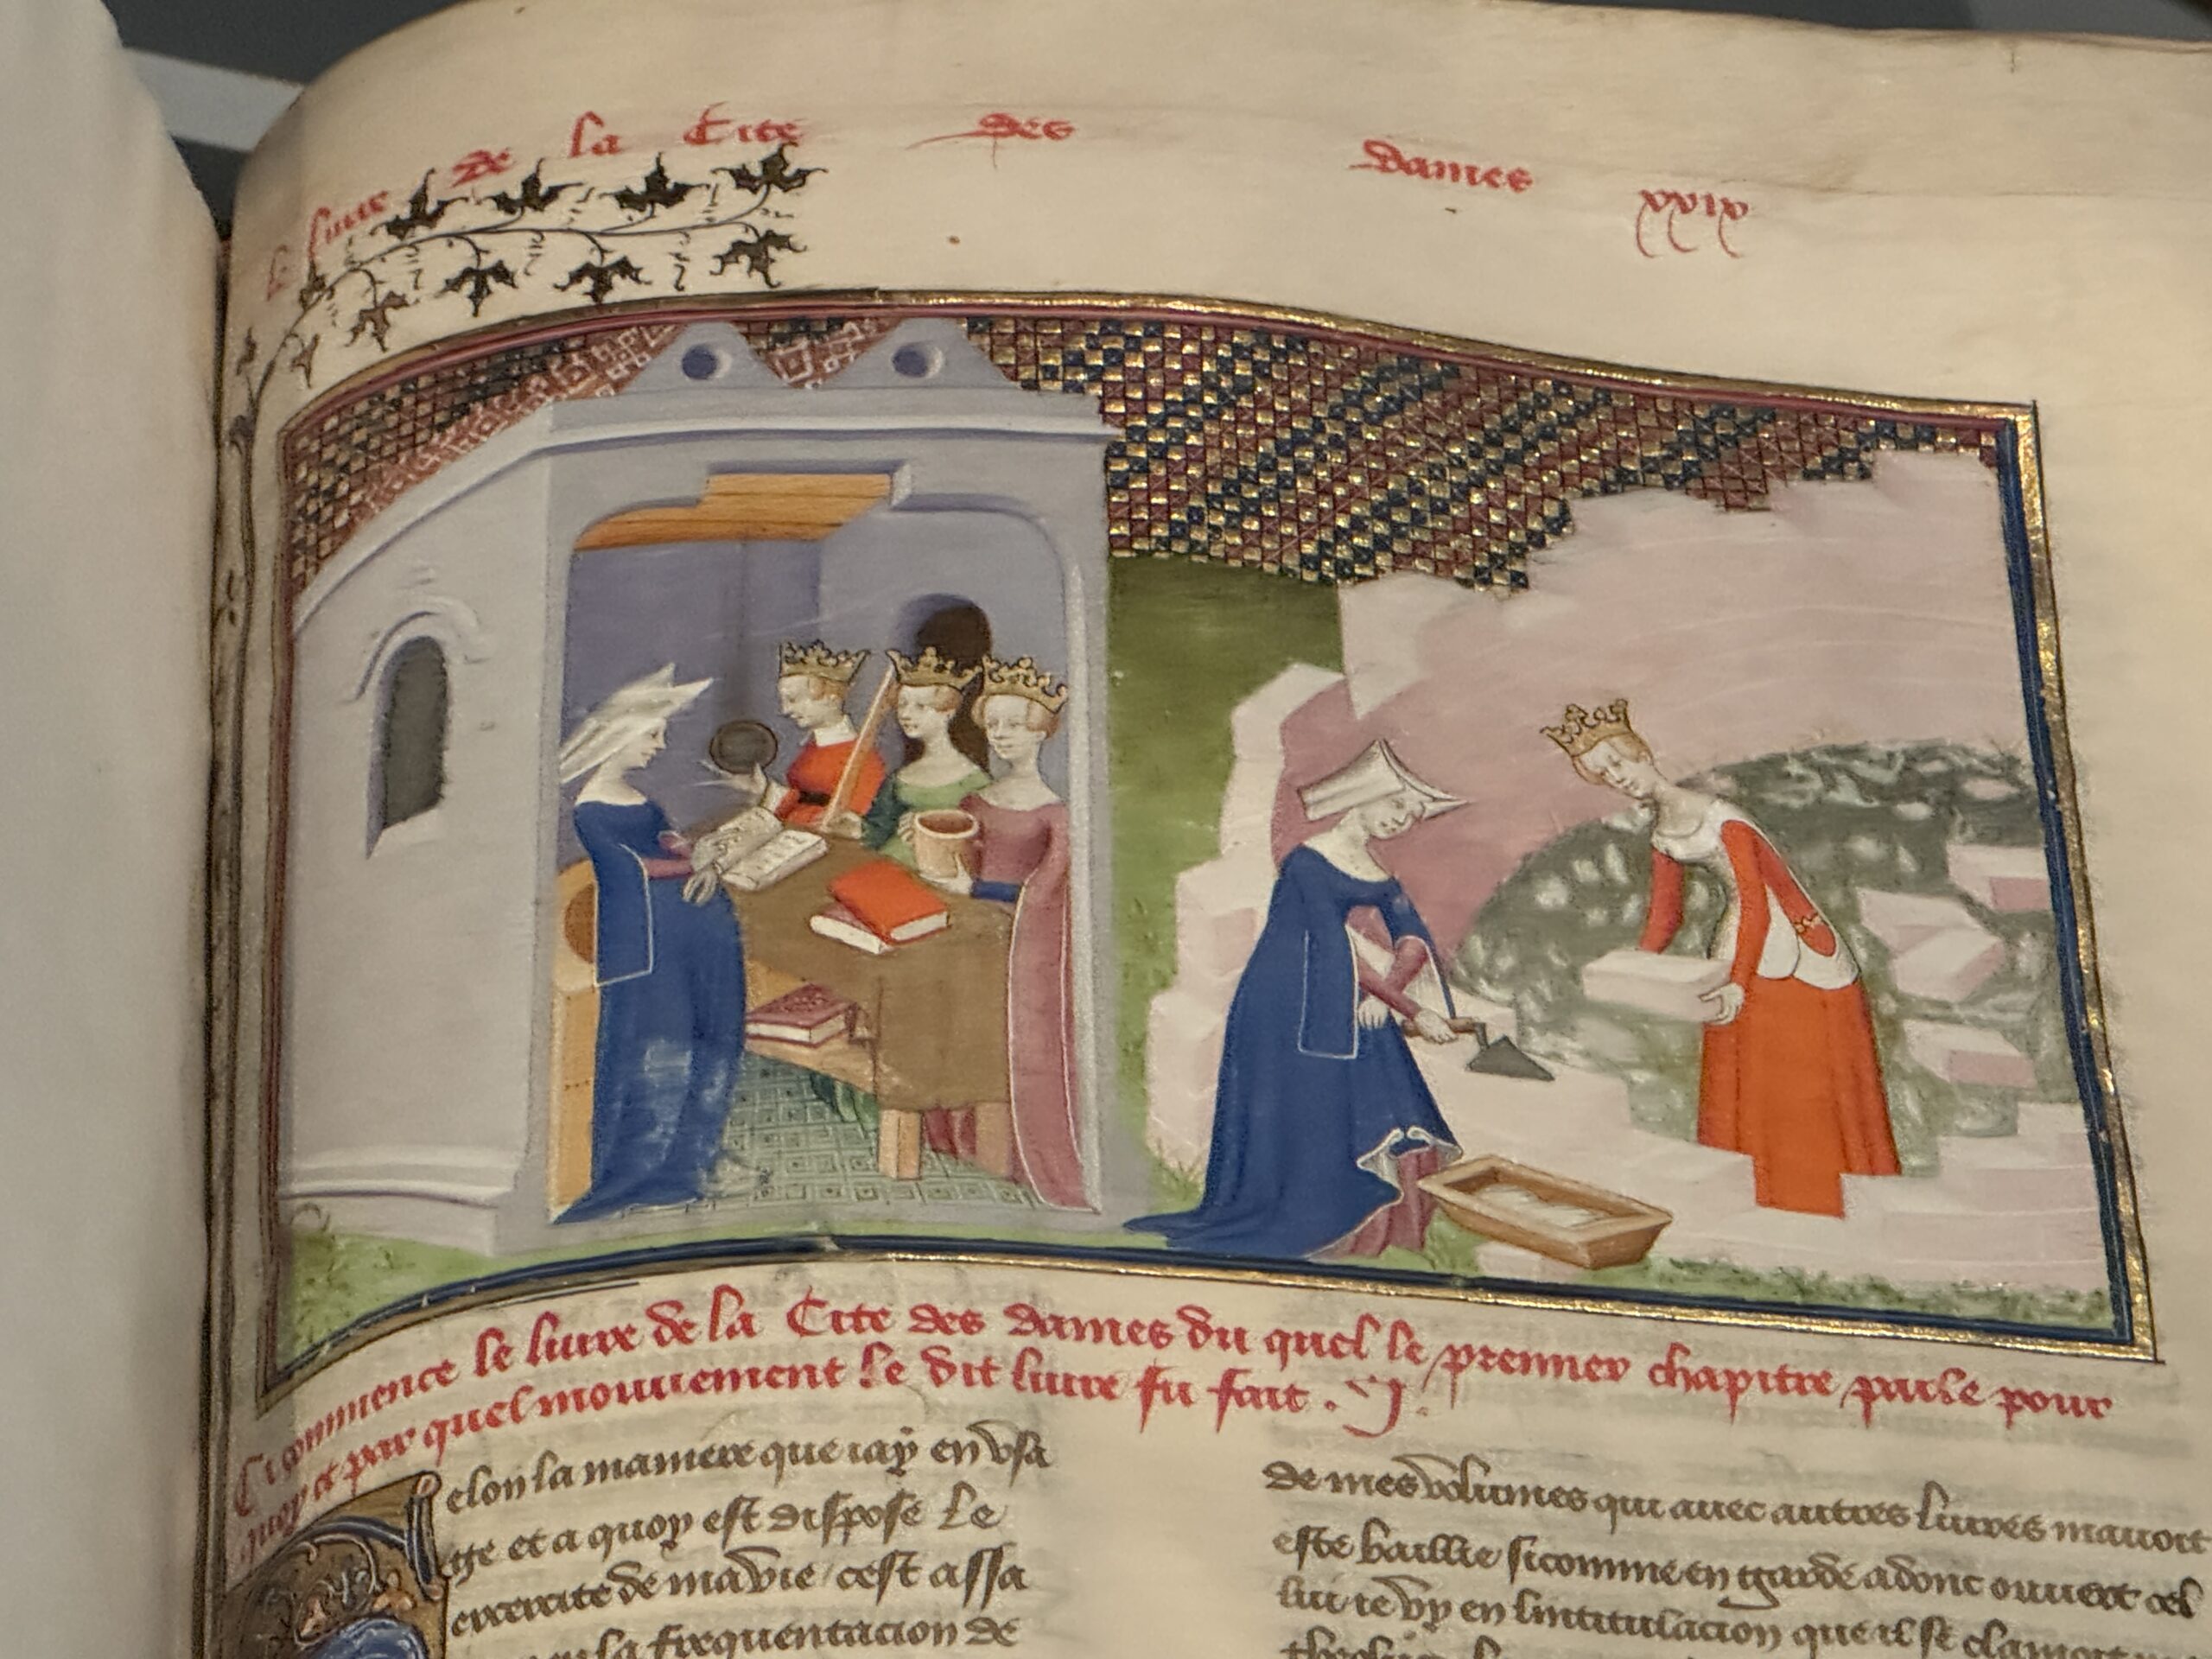 Le liure de la Cite des Dames xxix
Ci commence le liure de la Cite des dames du quel le premier chapitre parle pour
quoy et par quel mouuement le dit liure fu fait . j.
Selon la maniere que iay en vsa
ge et a quoy est dispose le
excercite de ma vie / cest assa
la frequentacion de
de mes volumes qui auec autres liures mauoit
este baillie sicomme en garde adonc ouuert cel
lui ie vy en lintitulacion que il se clamoit